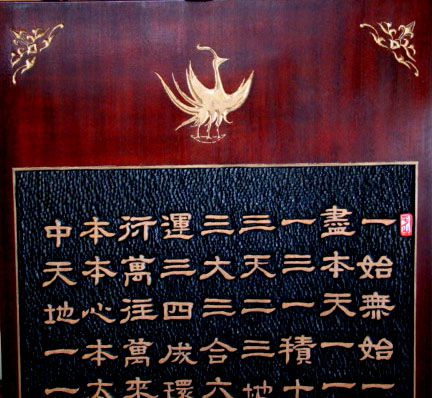 一始無始一
盡本天一一
一三一積十
三天二三地
三大三合六
運三四成環
衍萬往萬來
本本心本太
中天地一一